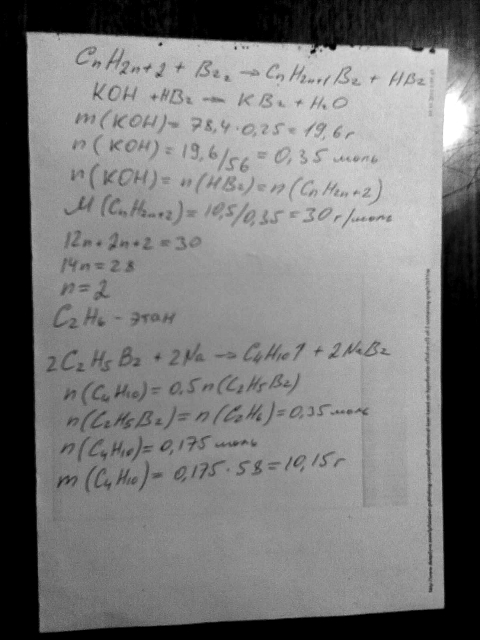 CnH2n+2 + Br2 → CnH2n+1Br + HBr
KOH + HBr → KBr + H2O
m(KOH) = 78,4·0,25 = 19,6 г
n(KOH) = 19,6/56 = 0,35 моль
n(KOH) = n(HBr) = n(CnH2n+2)
M(CnH2n+2) = 10,5/0,35 = 30 г/моль
12n + 2n + 2 = 30
14n = 28
n = 2
C2H6 - этан
2C2H5Br + 2Na → C4H10↑ + 2NaBr
n(C4H10) = 0,5n(C2H5Br)
n(C2H5Br) = n(C2H6) = 0,35 моль
n(C4H10) = 0,175 моль
m(C4H10) = 0,175·58 = 10,15 г